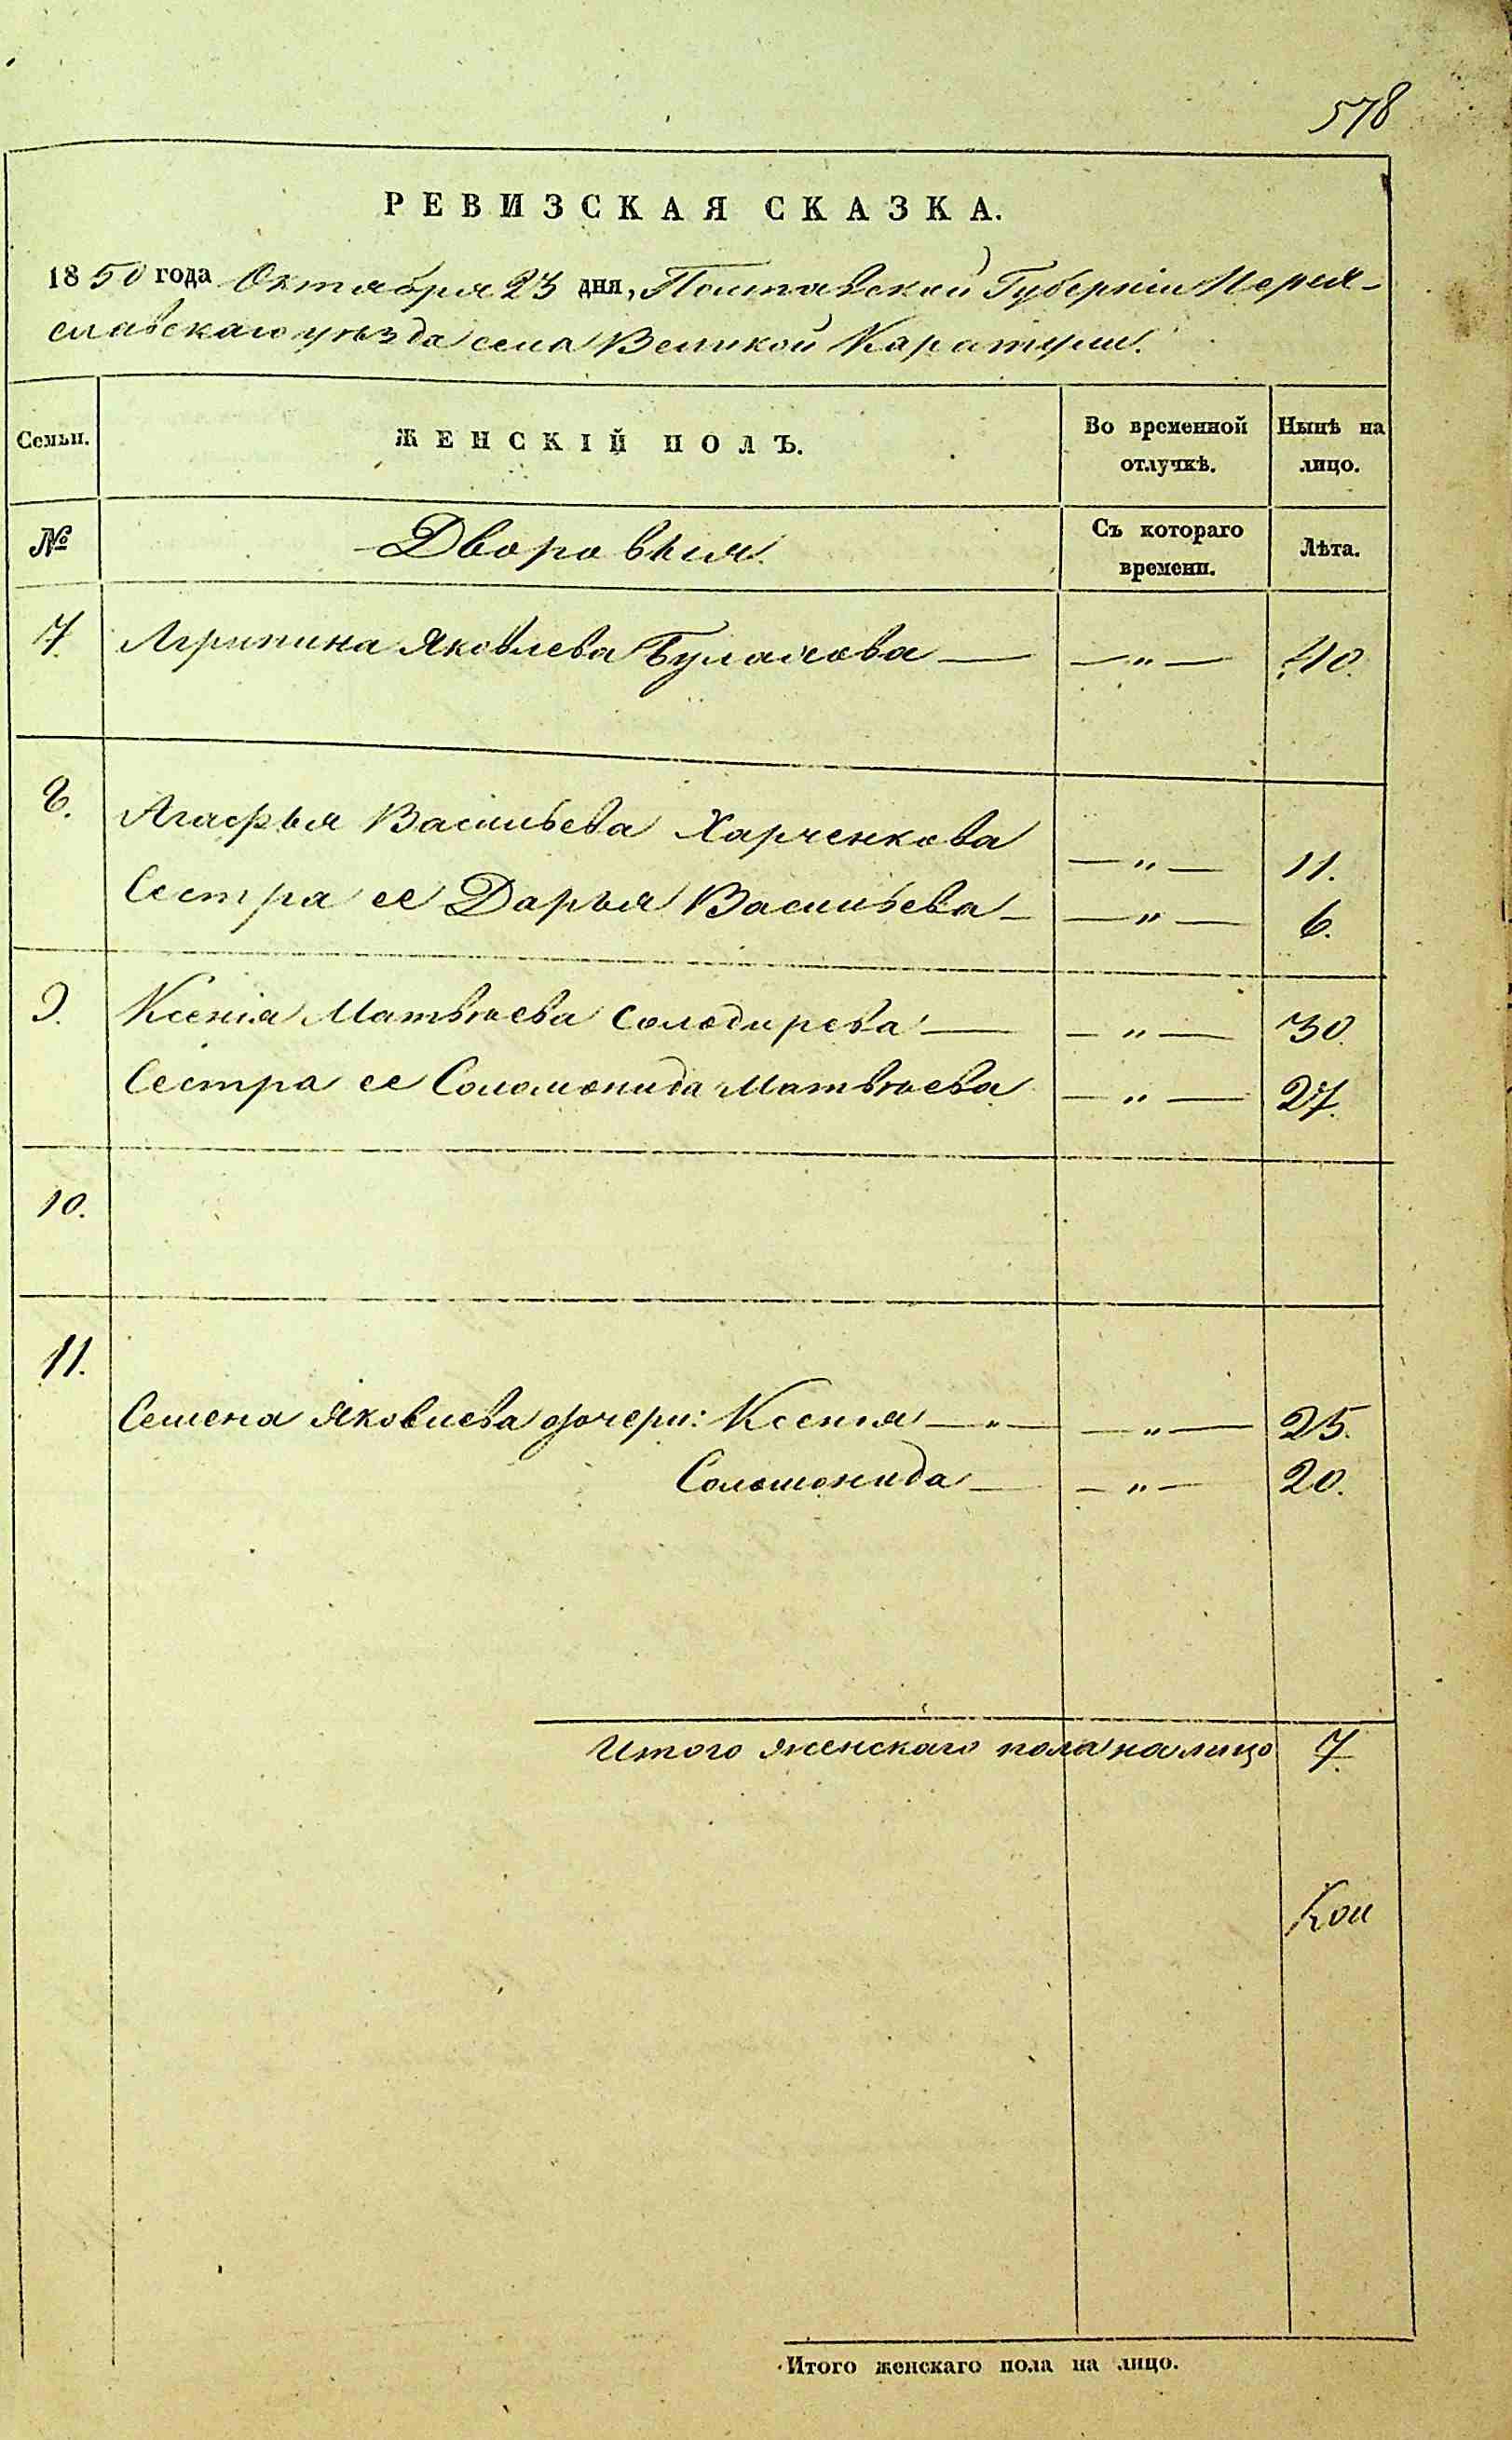 578
РЕВИЗСКАЯ СКАЗКА.
1850 года Октября 23 дня, Полтавской Губерніи Перея-
славскаго уѣзда села Великой Каратули.
Семьи. ЖЕНСКІЙ ПОЛЪ. Во временной отлучкѣ. Нынѣ на лицо.
№ Дворовыя. Съ котораго времени. Лѣта.
7. Агрипина Яковлева — — „ — 40.
8. Агафья Васильева Харченкова — „ — 11.
Сестра ее Дарья Васильева — — „ — 6.
9. Ксенія Матвѣева Солодирева — — „ — 30.
Сестра ее Соломонида Матвѣева — „ — 27.
10.
11.
Семена Яковлева дочери: Ксенія — „ — — „ — 25.
Соломонида — — „ — 20.
Итого женскаго пола на лицо 7.
Итого женскаго пола на лицо.